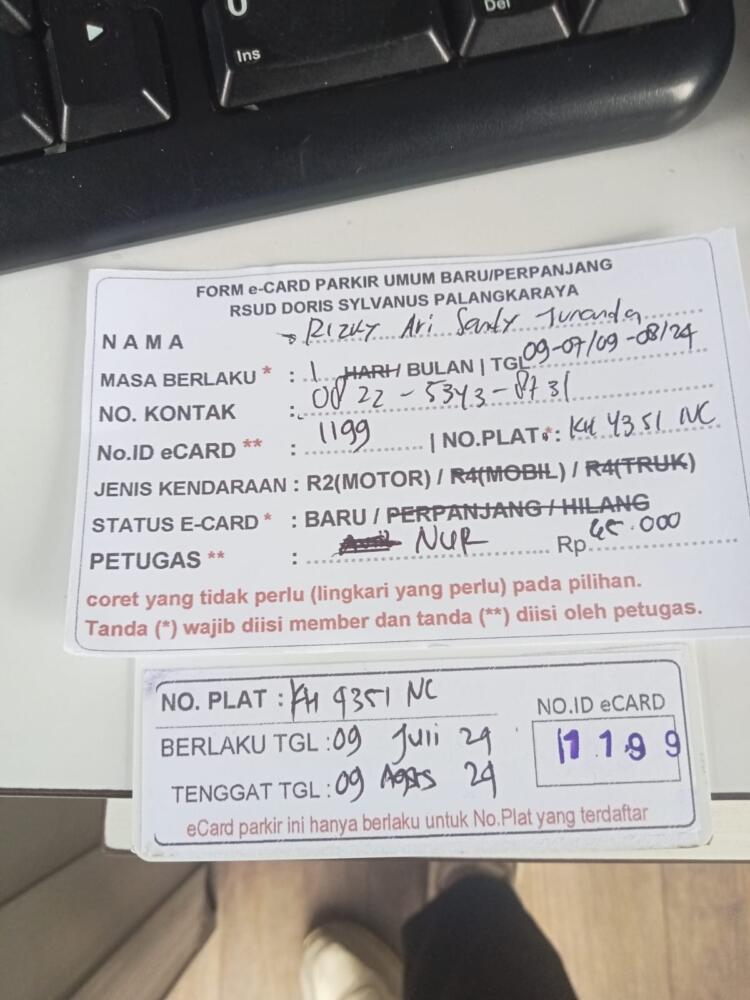 0
Ins
Del
FORM e-CARD PARKIR UMUM BARU/PERPANJANG
RSUD DORIS SYLVANUS PALANGKARAYA
NAMA Rizky Ari Sandy Juranda
MASA BERLAKU * : 1 HARI / BULAN | TGL 09-07/09-08/24
NO. KONTAK : 0822-5343-8731
No.ID eCARD ** : 1199 | NO.PLAT * : KH 4351 NC
JENIS KENDARAAN : R2(MOTOR) / R4(MOBIL) / R4(TRUK)
STATUS E-CARD * : BARU / PERPANJANG / HILANG
PETUGAS ** : NUR Rp 45.000
coret yang tidak perlu (lingkari yang perlu) pada pilihan.
Tanda (*) wajib diisi member dan tanda (**) diisi oleh petugas.
NO. PLAT : KH 4351 NC
NO.ID eCARD
BERLAKU TGL : 09 Juli 24
1199
TENGGAT TGL : 09 Agts 24
eCard parkir ini hanya berlaku untuk No.Plat yang terdaftar